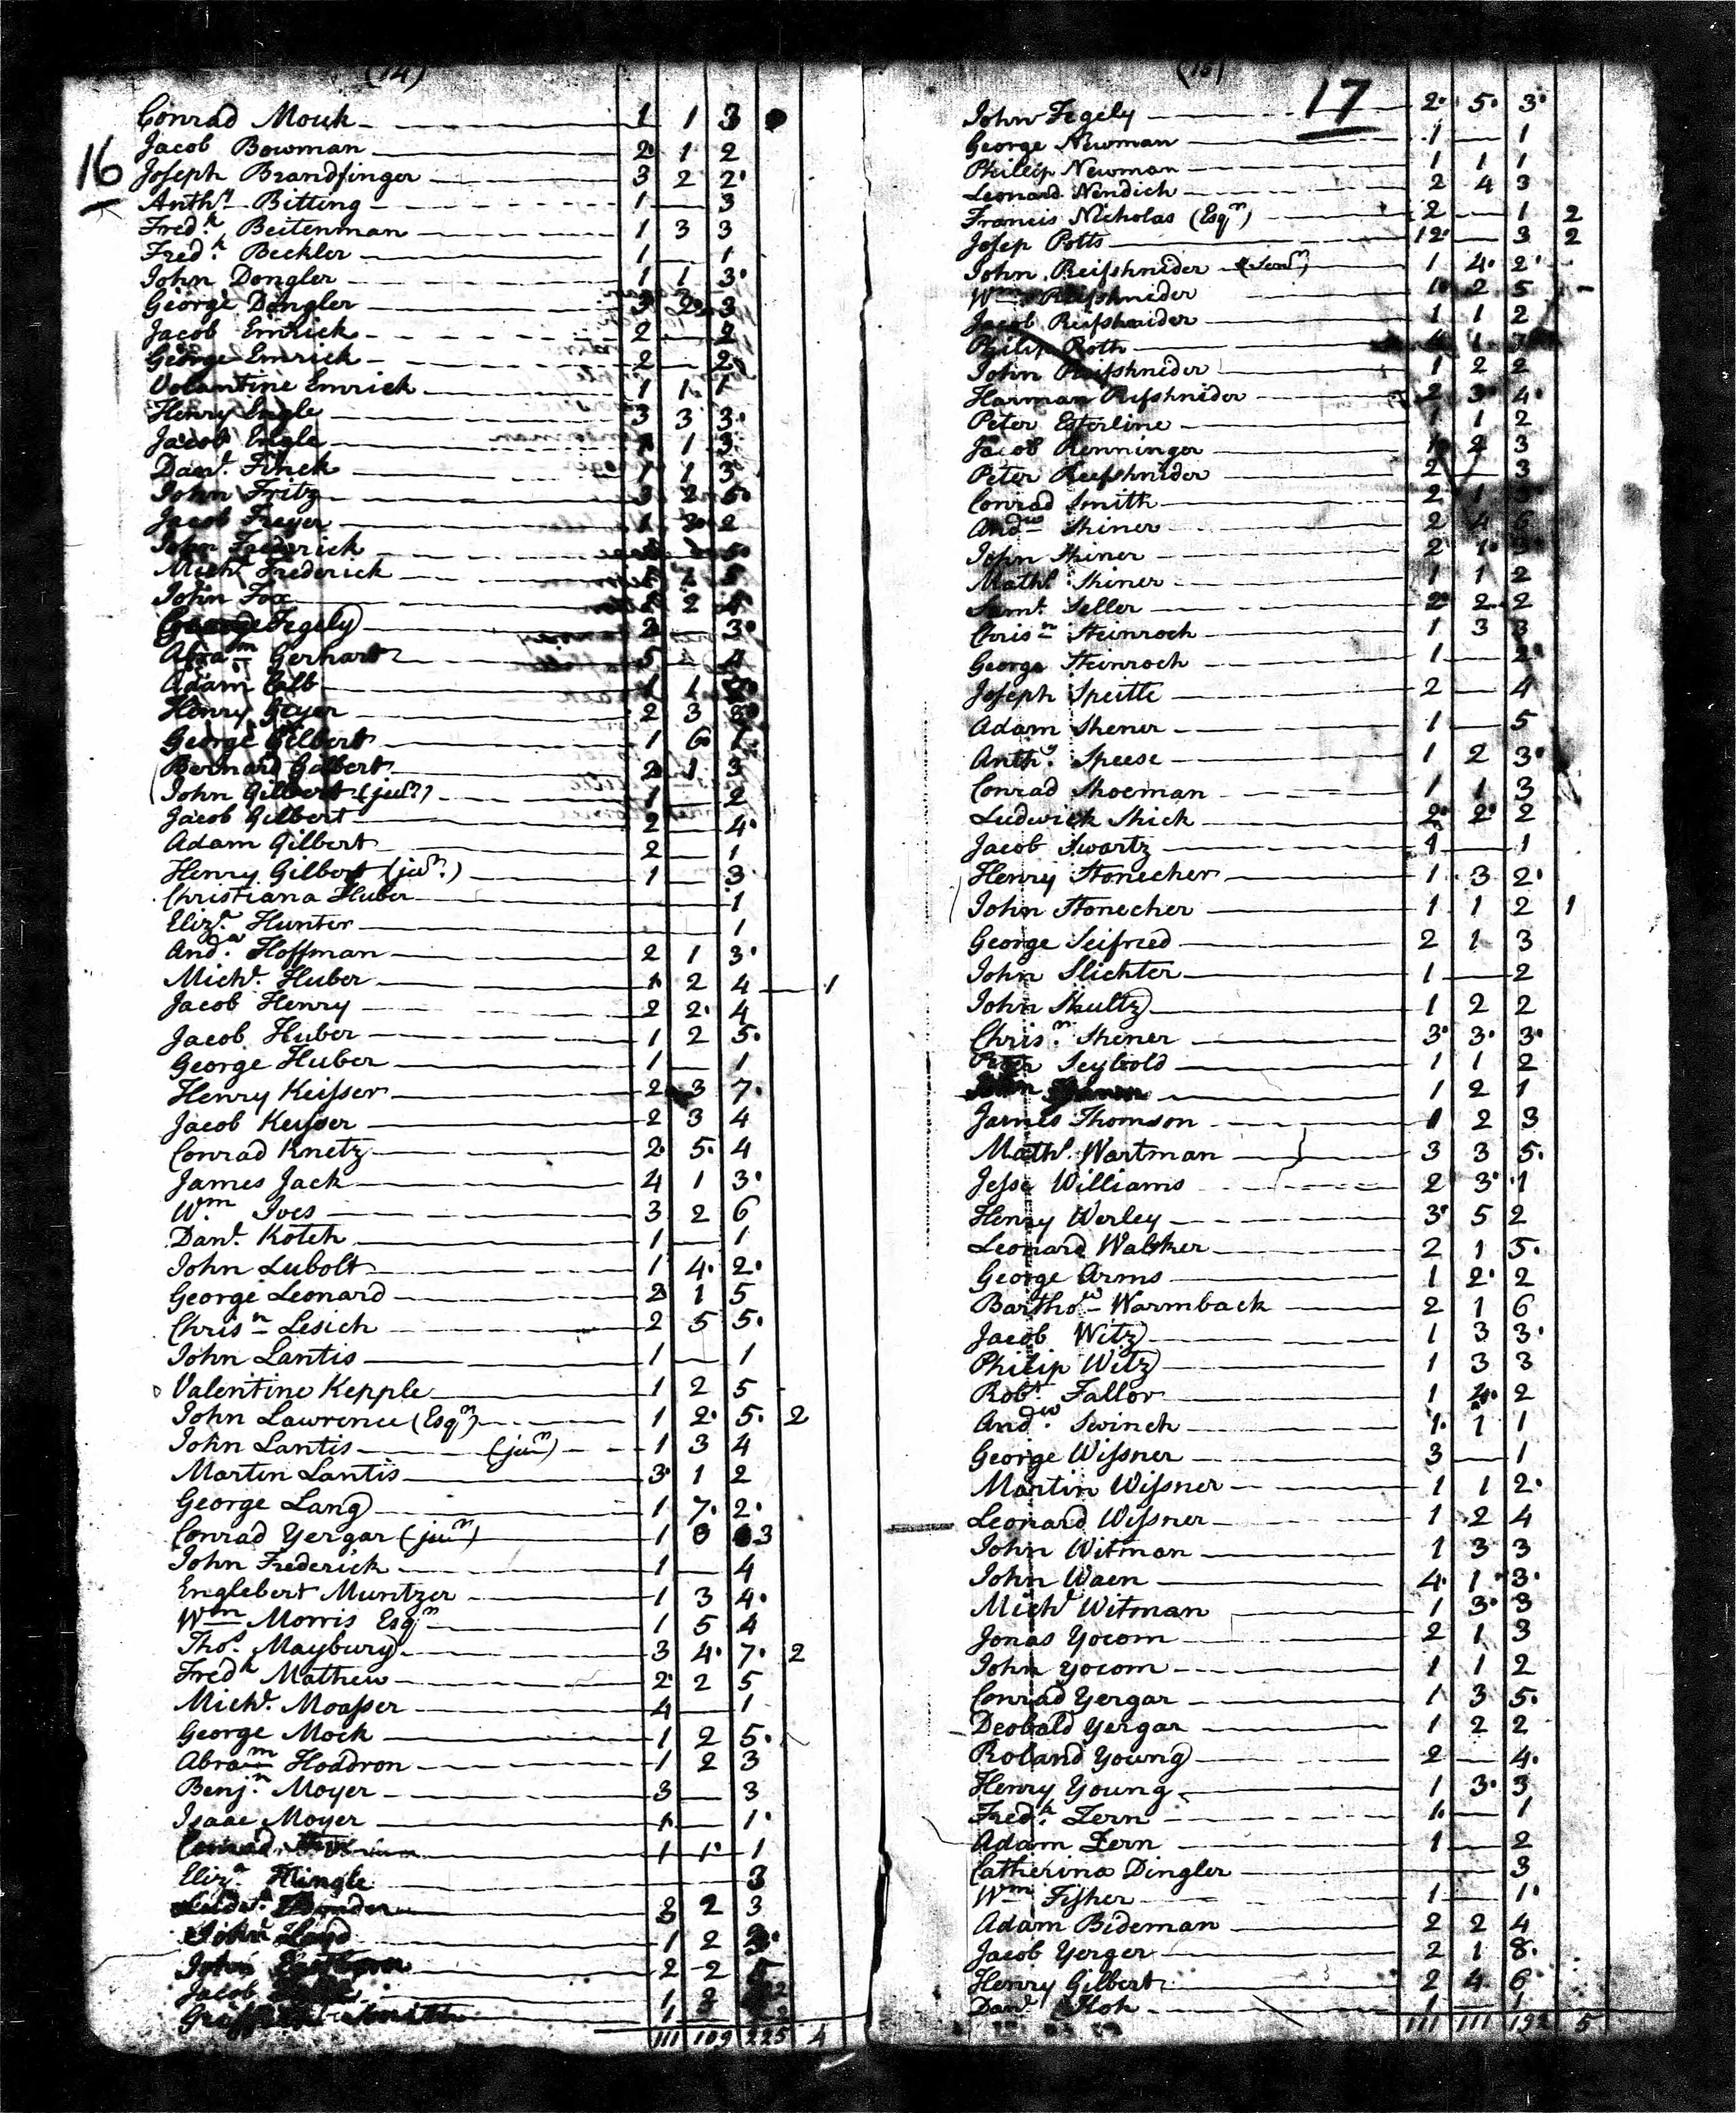 (14)
16
Conrad Mouk 1 1 3
Jacob Bowman 2 1 2
Joseph Brandfinger 3 2 2
Anthy. Bitting 1 — 3
Fredk. Beitenman 1 3 3
Fredk. Beckler 1 — 1
John Dongler 1 1 3
George Dengler 3 2 3
Jacob Emrick 2 — 2
George Emrick 2 — 2
Volantine Emrick 1 1 1
Henry Engle 3 3 3
Jacob Engle 1 3
Danl. Finck 1 1 3
John Fritz 3 2 5
Jacob Freyer 1 3 2
John Frederick 5
Michl. Frederick
John Fox 2
George Fegely 2 — 3
Abram Gerhart 5 — 4
Adam Galb 1 1
Henry Geyer 2 3 3
George Gilbert 1 6 1
Bernard Gilbert 2 1 3
John Gilbert (junr) 1 — 2
Jacob Gilbert 2 — 4
Adam Gilbert 2 — 1
Henry Gilbert (junr.) 1 — 3
Christiana Huber — — 1
Eliza. Hunter — — 1
Andw. Hoffman 2 1 3
Michl. Huber 1 2 4 — 1
Jacob Henry 2 2 4
Jacob Huber 1 2 5
George Huber 1 — 1
Henry Keisser 2 3 7
Jacob Keysser 2 3 4
Conrad Knetz 2 5 4
James Jack 4 1 3
Wm. Ives 3 2 6
Danl. Kotch 1 — 1
John Lubolt 1 4 2
George Leonard 2 1 5
Chrisn Lesich 2 5 5
John Lantis 1 — 1
Valentine Kepple 1 2 5
John Lawrence (Esqr) 1 2 5 2
John Lantis (junr) 1 3 4
Martin Lantis 3 1 2
George Lang 1 7 2
Conrad Yergar (junr) 1 3 3
John Frederick 1 — 4
Englebert Muntzer 1 3 4
Wm Morris Esqr 1 5 4
Thos. Maybury 3 4 7 2
Fredk Mathew 2 2 5
Michl. Moasser 4 — 1
George Mock 1 2 5
Abram Hoddron 1 2 3
Benjn. Moyer 3 — 3
Isaac Moyer 1 — 1
Conrad 1 1 1
Eliza. Hingle — — 3
3 2 3
John 1 2
John 2 2
Jacob 1
Smith 1
111 109 225 4
(15)
17
John Fegely 2 5 3
George Newman 1 — 1
Philip Newman 1 1 1
Leonard Nendich 2 4 3
Francis Nicholas (Esqr) 2 — 1 2
Josep Potts 12 — 3 2
John Reifshnider (Senr) 1 4 2
Wm. Reifshnider 1 2 5
Jacob Reifshnider 1 1 2
Philip Roth 1
John Reifshnider 1 2 2
Harman Rifshnider 2 3 4
Peter Esterline 1 1 2
Jacob Renninger 1 2 3
Peter Reefshnider 2 — 3
Conrad Smith 2 1 3
Andw Shiner 2 4 6
John Shiner 2 1 3
Maths. Shiner 1 1 2
Saml. Seller 2 2 2
Chrisn Steinroch 1 3 3
George Steinroch 1 — 2
Joseph Speitte 2 — 4
Adam Shener 1 — 5
Anthy. Speese 1 2 3
Conrad Shoeman 1 1 3
Ludwick Shick 2 2 2
Jacob Swartz 1 — 1
Henry Stonecher 1 3 2
John Stonecher 1 1 2 1
George Seifried 2 1 3
John Slichter 1 — 2
John Shultz 1 2 2
Chrisn. Shiner 3 3 3
Peter Seybold 1 1 2
1 2 1
James Thomson 1 2 3
Maths. Wartman 3 3 5
Jesse Williams 2 3 1
Henry Werley 3 5 2
Leonard Walker 2 1 5
George Arms 1 2 2
Barthow Warmback 2 1 6
Jacob Witz 1 3 3
Philip Witz 1 3 3
Robt. Fallor 1 4 2
Andw. Swinch 1 1 1
George Wissner 3 — 1
Martin Wissner 1 1 2
Leonard Wissner 1 2 4
John Witman 1 3 3
John Waen 4 1 3
Michl Witman 1 3 3
Jonas Yocom 2 1 3
John Yocom 1 1 2
Conrad Yergar 1 3 5
Deobald Yergar 1 2 2
Roland Young 2 — 4
Henry Young 1 3 3
Fredk. Zern 1 — 1
Adam Zern 1 — 2
Catherina Dingler — — 3
Wm Fisher 1 — 1
Adam Bideman 2 2 4
Jacob Yerger 2 1 8
Henry Gilbert 2 4 6
Danl. Hoh 1 — 1
111 111 192 5